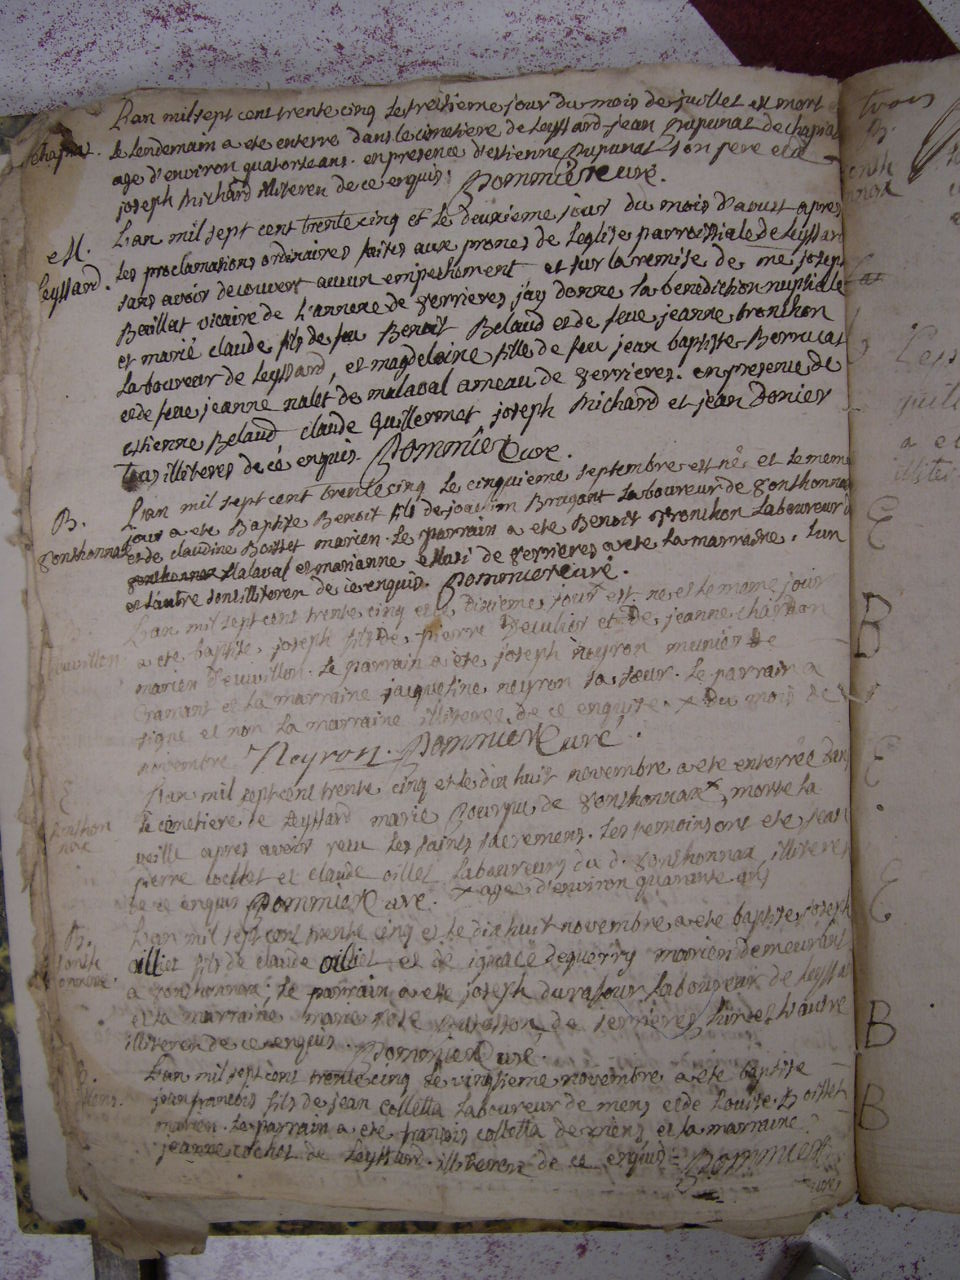 Lan mil sept cent trente cinq le treisieme jour du mois de juillet est mort
chapiat. le lendemain a ete enterre dans le cimetiere de Leyssard jean Dupunat de chapiat
age d'environ quatorse ans. en presence d'estienne Dupunat son pere et de
joseph Michard illiteren de ce enquis. Pommier cure.
Lan mil sept cent trente cinq et le deuxieme jour du mois d'aoust apres
M.
Leyssard. les proclamations ordinaires faites aux prones de leglise parroissiale de Leyssard
sans avoir decouvert aucun empeschement et sur la remise de me joseph
Baillat vicaire de l'annexe de serrieres j'ay donne la benediction nuptiale
et marié claude fils de feu Benoit Belaud et de feue jeanne tronchon
laboureur de Leyssard, et magdelaine fille de feu jean baptiste Borrucat
et de feue jeanne nalet de malaval ameau de serrieres. en presence de
estienne Belaud claude Guillermet joseph Michard et jean Donier
tous illiteres de ce enquis. Pommier cure.
B. Lan mil sept cent trente cinq le cinquieme septembre est né et le meme
gonshonnax jour a ete Baptise Benoit fils de joachim Brugant laboureur de gonshonnax
et de claudine Boittet marien. le parrain a ete Benoit tronchon laboureur
malaval et marianne de serrieres a ete la marraine, l'un
et l'autre sont illiteren de ce enquis. Pommier curé.
Lan mil sept cent trente cinq et le dixieme jour x est né et le meme jour
a ete baptise joseph fils de pierre et de jeanne chardon
marien d'euvillon. le parrain a ete joseph neyron meunier de
Cranant et la marraine jacqueline neyron sa soeur. le parrain a
signe et non la marraine illiteree de ce enquise. x du mois de
novembre Neyron. Pommier curé.
Lan mil sept cent trente cinq et le dix huit novembre a ete enterrée dans
gonshon
nax le cimetiere de Leyssard marie Bourqui de gonshonnax x, morte la
veille apres avoir recu les saints sacremens. les temoins ont ete jean
pierre cochet et claude oillet laboureurs du d. gonshonnax illiteres
de ce enquis Pommier cure. x agee d'environ quarante ans
B. Lan mil sept cent trente cinq et le dix huit novembre a ete baptise joseph
oilliet fils de claude oilliet et de ignace dequerry marien demeurant
a gonshonnax; le parrain a ete joseph durafour laboureur de Leyssard
et la marraine marie de serrieres, l'un et l'autre
illiteren de ce enquis. Pommier curé.
Lan mil sept cent trente cinq le vingtieme novembre a ete baptise
jean francois fils de jean colletta laboureur de mens et de Louise Boillet
marien. le parrain a ete francois colletta de mens et la marraine
jeanne cochet de Leyssard. illiteren de ce enquis = Pommier
curé